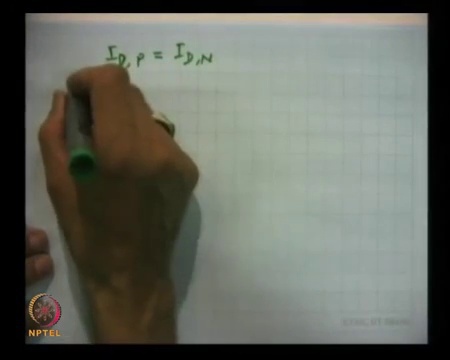 I_D,P = I_D,N
NPTEL